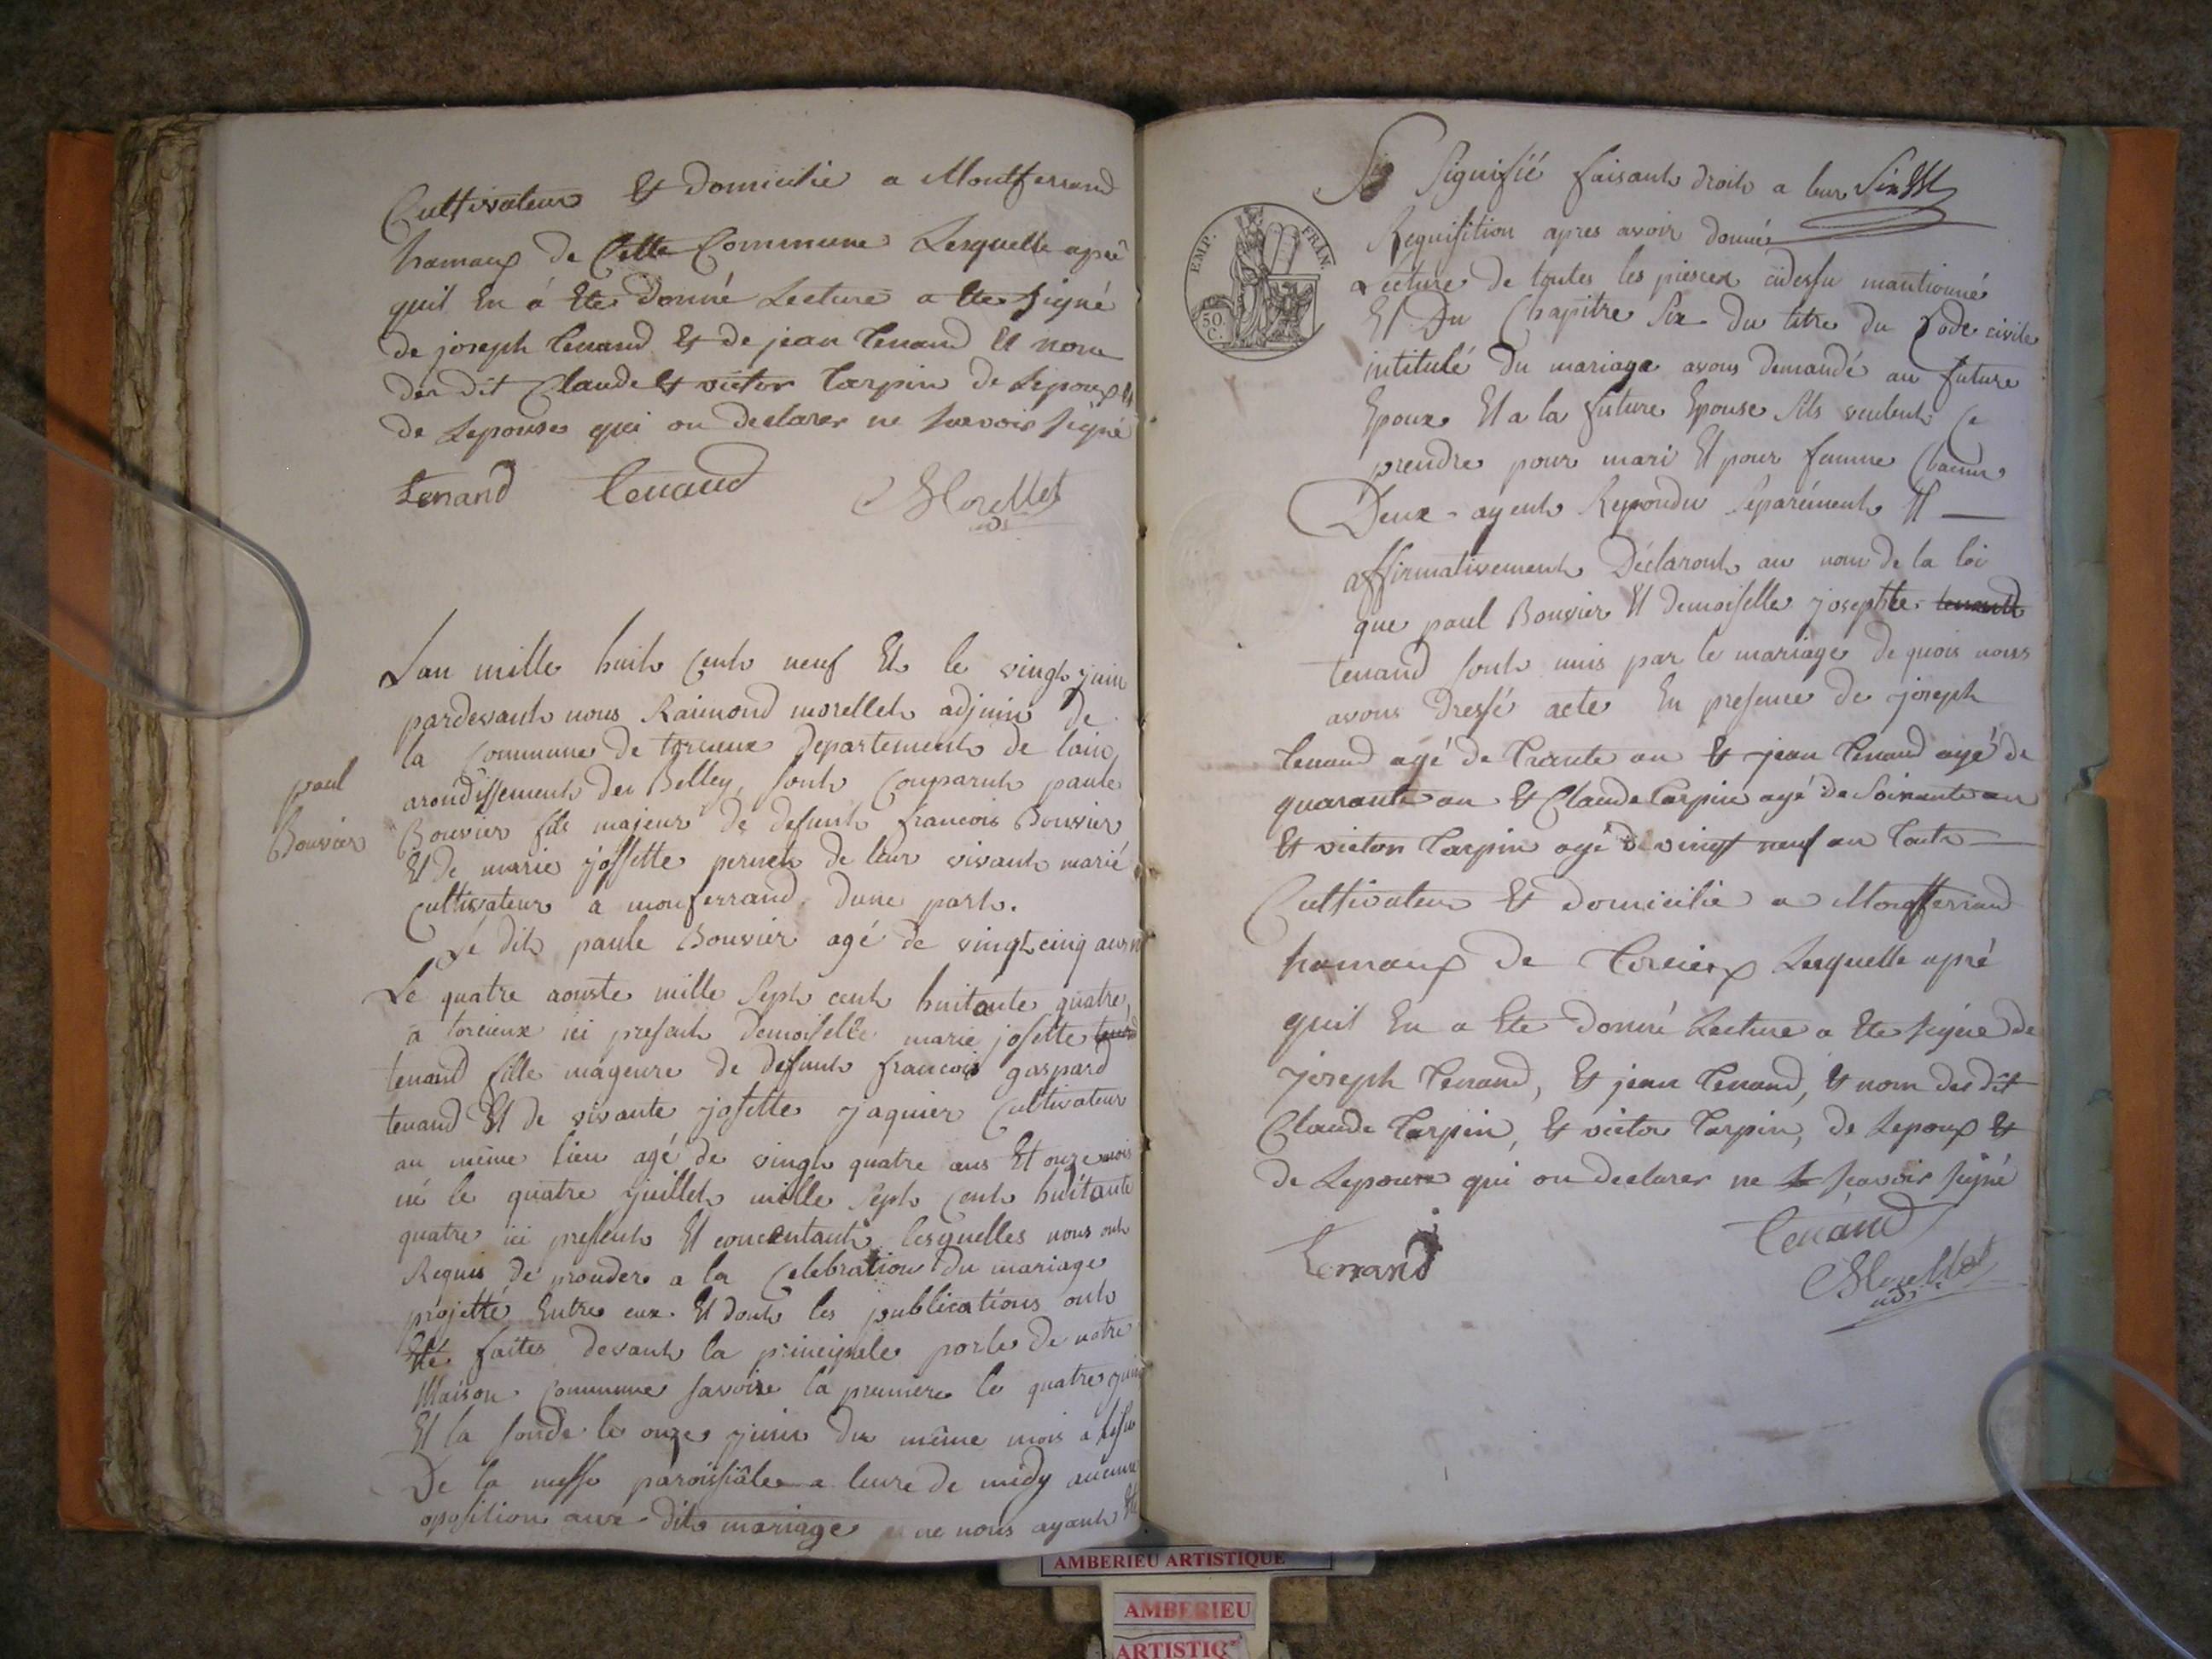 Cultivateur Et Domicilié a Montferrand
hamaux de Cette Commune Lesquelle aprè
quil En á Ete Donné Lecture a Ete signé
de joseph tenand Et de jean tenand Et nom
des dit Claude Et victor tarpin de Lepoux Et
de Lepouse qui on declarer ne scavoir signé
tenand tenand Morellet
Lan mille huit Cent neuf Et le vingt juin
pardevant nous Raimond morellet adjoin de
la Commune de torcieux departement de lain
arondissement de Belley, sont Comparut paule
paul
Bouvier
Bouvier fils majeur de defunt francois Bouvier
Et de marie josette pernet de leur vivant marié
Cultivateur a monferrand dune part.
Le dit paule Bouvier agé de vingt cinq ans n
Le quatre aouste mille Sept cent huitante quatre
a torcieux ici present demoiselle marie josette
tenand fille mageure de defunt francois gaspard
tenand Et de vivante josette jaquier Cultivateur
au même lieu agé de vingt quatre ans Et onze mois
né le quatre juillet mille Sept Cent huitante
quatre ici present Et concentant lesquelles nous ont
Requis de prouder a la Celebration du mariage
projetté Entre eux. Et dont les publications ont
Eté faites devant la principale porte de notre
Maison Commune savoire la premiere le quatre juin
Et la sonde le onze juin du même mois a lisue
De la messe paroissiâle a leure de midy aucune
oposition aux dit mariage ne nous ayant Eté
Signifié faisant droit a leur
Requisition apres avoir donné
Lecture de toutes les pieces cidessu mantionné
Et Du Chapitre Six du titre du Code civile
intitulé Du mariage avons demandé au future
Epoux Et a la future Epouse Sils veulent Ce
prendre pour mari Et pour femme Chacun
Deux ayent Repondu Separément Et
affirmativement Déclaront au nom de la loi
que paul Bouvier Et demoiselle josephte tenand
tenand sont unis par le mariage de quois nous
avons Dressé acte En presence de joseph
tenand agé de trante an Et jean tenand agé de
quarante an Et Claude tarpin agé de Soixante an
Et victor tarpin agé de vingt neuf an tout
Cultivateur Et domicilié a Montferrand
hamaux de torcieux Lesquelle aprè
quil En a Ete donné Lecture a Ete signé de
joseph tenand, Et jean tenand, Et nom des dit
Claude tarpin, Et victor tarpin, de Lepoux Et
de Lepouse qui on declarer ne scavoir signé
tenand tenand
Morellet
EMP. FRAN.
50.
C.
AMBERIEU ARTISTIQUE
AMBERIEU
ARTISTIQ